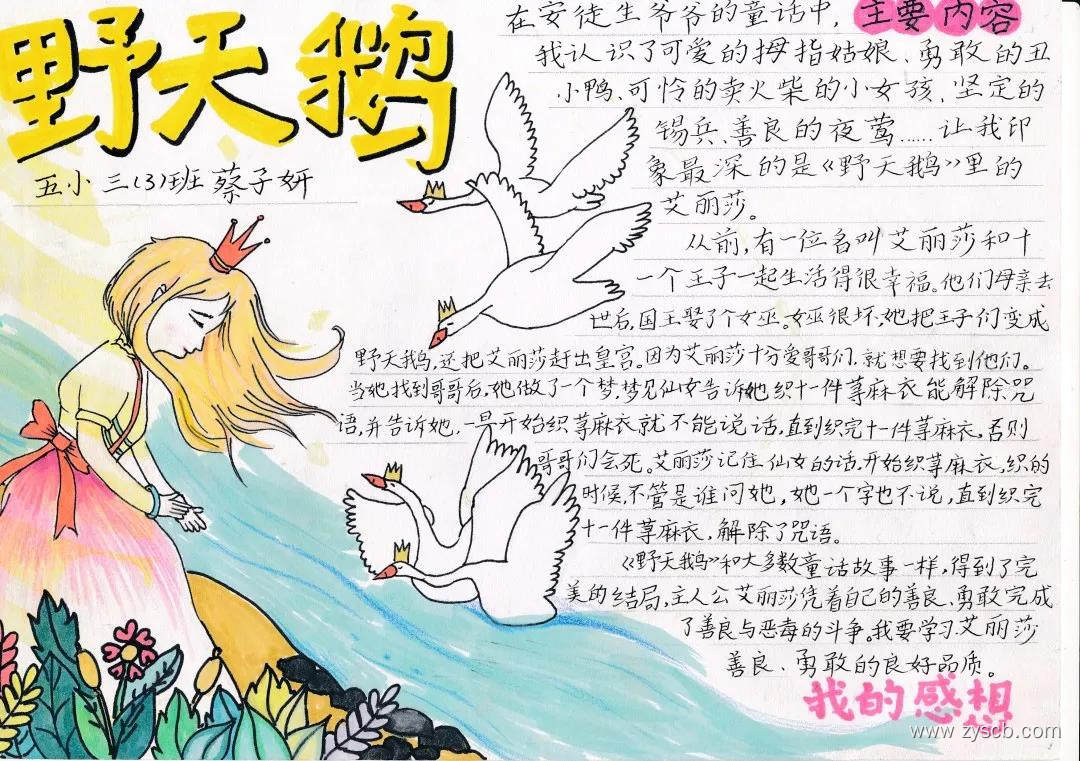 野天鹅
五小 三(3)班 蔡子妍
主要内容
在安徒生爷爷的童话中,
我认识了可爱的拇指姑娘、勇敢的丑
小鸭、可怜的卖火柴的小女孩、坚定的
锡兵、善良的夜莺……让我印
象最深的是《野天鹅》里的
艾丽莎。
从前,有一位名叫艾丽莎和十
一个王子一起生活得很幸福。他们母亲去
世后,国王娶了个女巫。女巫很坏,她把王子们变成
野天鹅,还把艾丽莎赶出皇宫。因为艾丽莎十分爱哥哥们,就想要找到他们。
当她找到哥哥后,她做了一个梦,梦见仙女告诉她织十一件荨麻衣能解除咒
语,并告诉她,一旦开始织荨麻衣就不能说话,直到织完十一件荨麻衣,否则
哥哥们会死。艾丽莎记住仙女的话,开始织荨麻衣,织的
时候,不管是谁问她,她一个字也不说,直到织完
十一件荨麻衣,解除了咒语。
《野天鹅》和大多数童话故事一样,得到了完
美的结局,主人公艾丽莎凭着自己的善良、勇敢完成
了善良与恶毒的斗争。我要学习艾丽莎
善良、勇敢的良好品质。
我的感想
www.zyscb.com